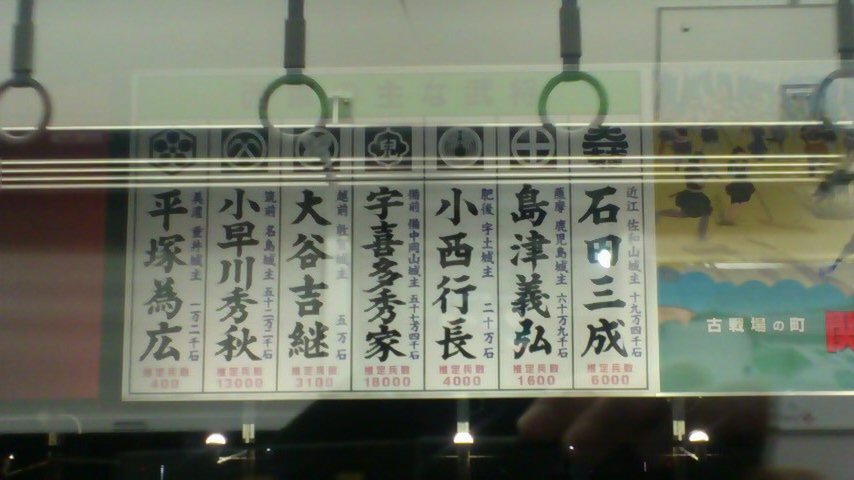 主な武将
近江 佐和山城主 十九万四千石
石田三成
推定兵数
6000
薩摩 鹿児島城主 六十万九千石
島津義弘
推定兵数
1600
肥後 宇土城主 二十万石
小西行長
推定兵数
4000
備前 備中岡山城主 五十七万四千石
宇喜多秀家
推定兵数
18000
越前 敦賀城主 五万石
大谷吉継
推定兵数
3100
筑前 名島城主 五十二万二千石
小早川秀秋
推定兵数
13000
美濃 垂井城主 一万二千石
平塚為広
推定兵数
400
古戦場の町